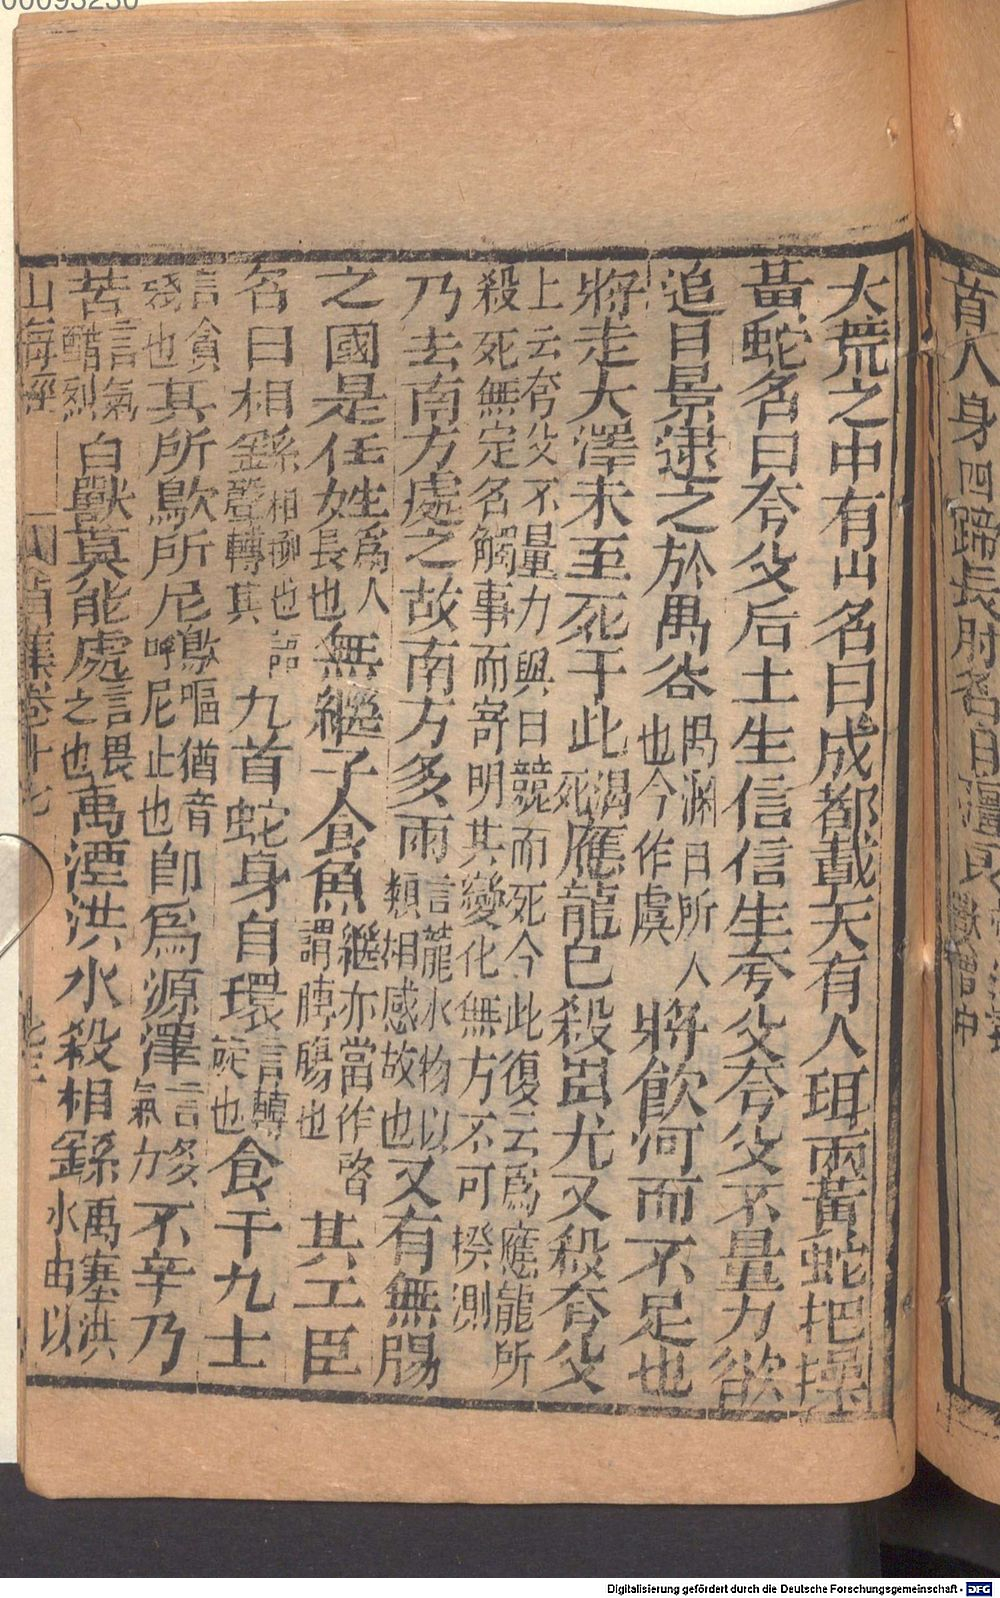 00093230
首人身四蹄長肘名曰
大荒之中有山名曰成都載天有人珥兩黃蛇把操
黃蛇名曰夸父后土生信信生夸父夸父不量力欲
追日景逮之於禺谷禺渊日所入也今作虞將飲河而不足也
將走大澤未至死于此渴死應龍已殺蚩尤又殺夸父
上云夸父不量力與日競而死今此復云爲應龍所
殺死無定名觸事而寄明其變化無方不可揆測
乃去南方處之故南方多雨言龍水物以類相感故也又有無腸
之國是任姓爲人長也無繼子食魚繼亦當作䏿謂膊腸也其工臣
名曰相繇相栁也語聲轉其九首蛇身自環言轉旋也食于九土
言貪殘也其所歍所尼歍嘔猶吟尼止也卽爲源澤言多氣力不辛乃
苦言氣酷烈百獸莫能處言畏之也禹湮洪水殺相繇禹塞洪水由以
山海經
卷十七
Digitalisierung gefördert durch die Deutsche Forschungsgemeinschaft - DFG